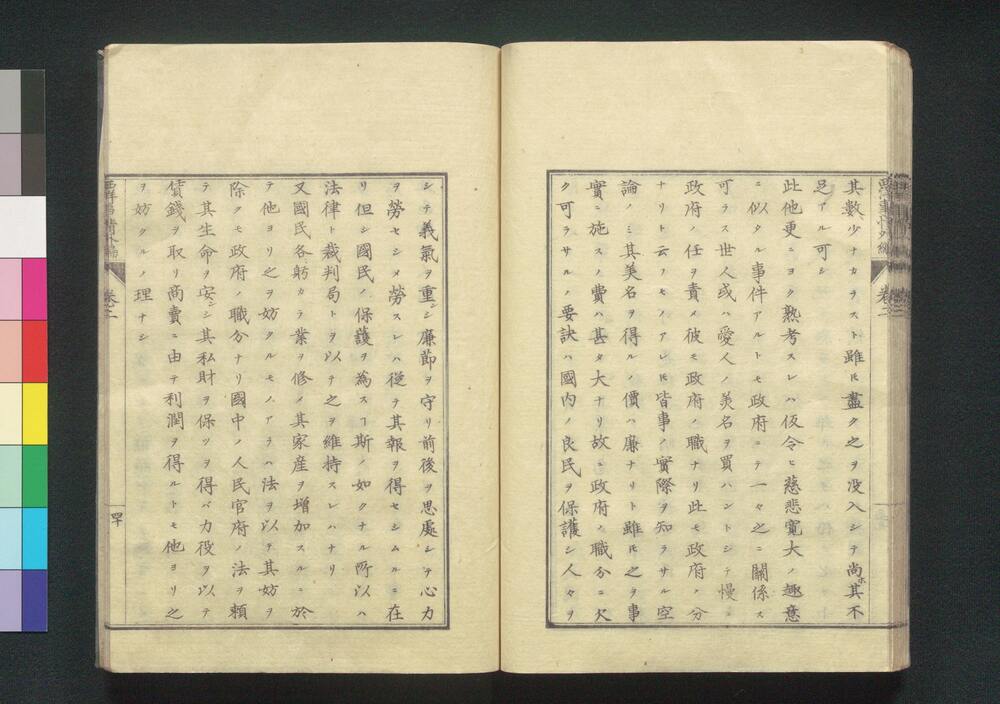 其數少ナカラスト雖𪜈盡ク之ヲ没入シテ尚ホ其不
足アル可シ
此他更ニヨク熟考スレハ仮令ヒ慈悲寛大ノ趣意
ニ似タル事件アルトモ政府ニテ一々之ニ關係ス
可ラス世人或ハ愛人ノ美名ヲ買ハントシテ慢ニ
政府ノ任ヲ責メ彼モ政府ノ職ナリ此モ政府ノ分
ナリト云フモノアレ𪜈皆事ノ實際ヲ知ラサル空
論ノミ其美名ヲ得ルノ價ハ廉ナリト雖𪜈之ヲ事
實ニ施スノ費ハ甚タ大ナリ故ニ政府ノ職分ニ欠
ク可ラサルノ要訣ハ國内ノ良民ヲ保護シ人々ヲ
西洋事情外編
卷二
シテ義氣ヲ重シ廉節ヲ守リ前後ヲ思慮シテ心力
ヲ勞セシメ勞スレハ從テ其報ヲ得セシムルニ在
リ但シ國民ノ保護ヲ為スヿ斯ノ如クナル所以ハ
法律ト裁判局トヲ以テ之ヲ維持スレハナリ
又國民各躬カラ業ヲ修メ其家産ヲ增加スルニ於
テ他ヨリ之ヲ妨クルモノアラハ法ヲ以テ其妨ヲ
除クモ政府ノ職分ナリ國中ノ人民官府ノ法ヲ頼
テ其生命ヲ安ンシ其私財ヲ保ツヲ得ハ力役ヲ以テ
賃錢ヲ取リ商賣ニ由テ利潤ヲ得ルトモ他ヨリ之
ヲ妨クルノ理ナシ
西洋事情外編
卷二
四十